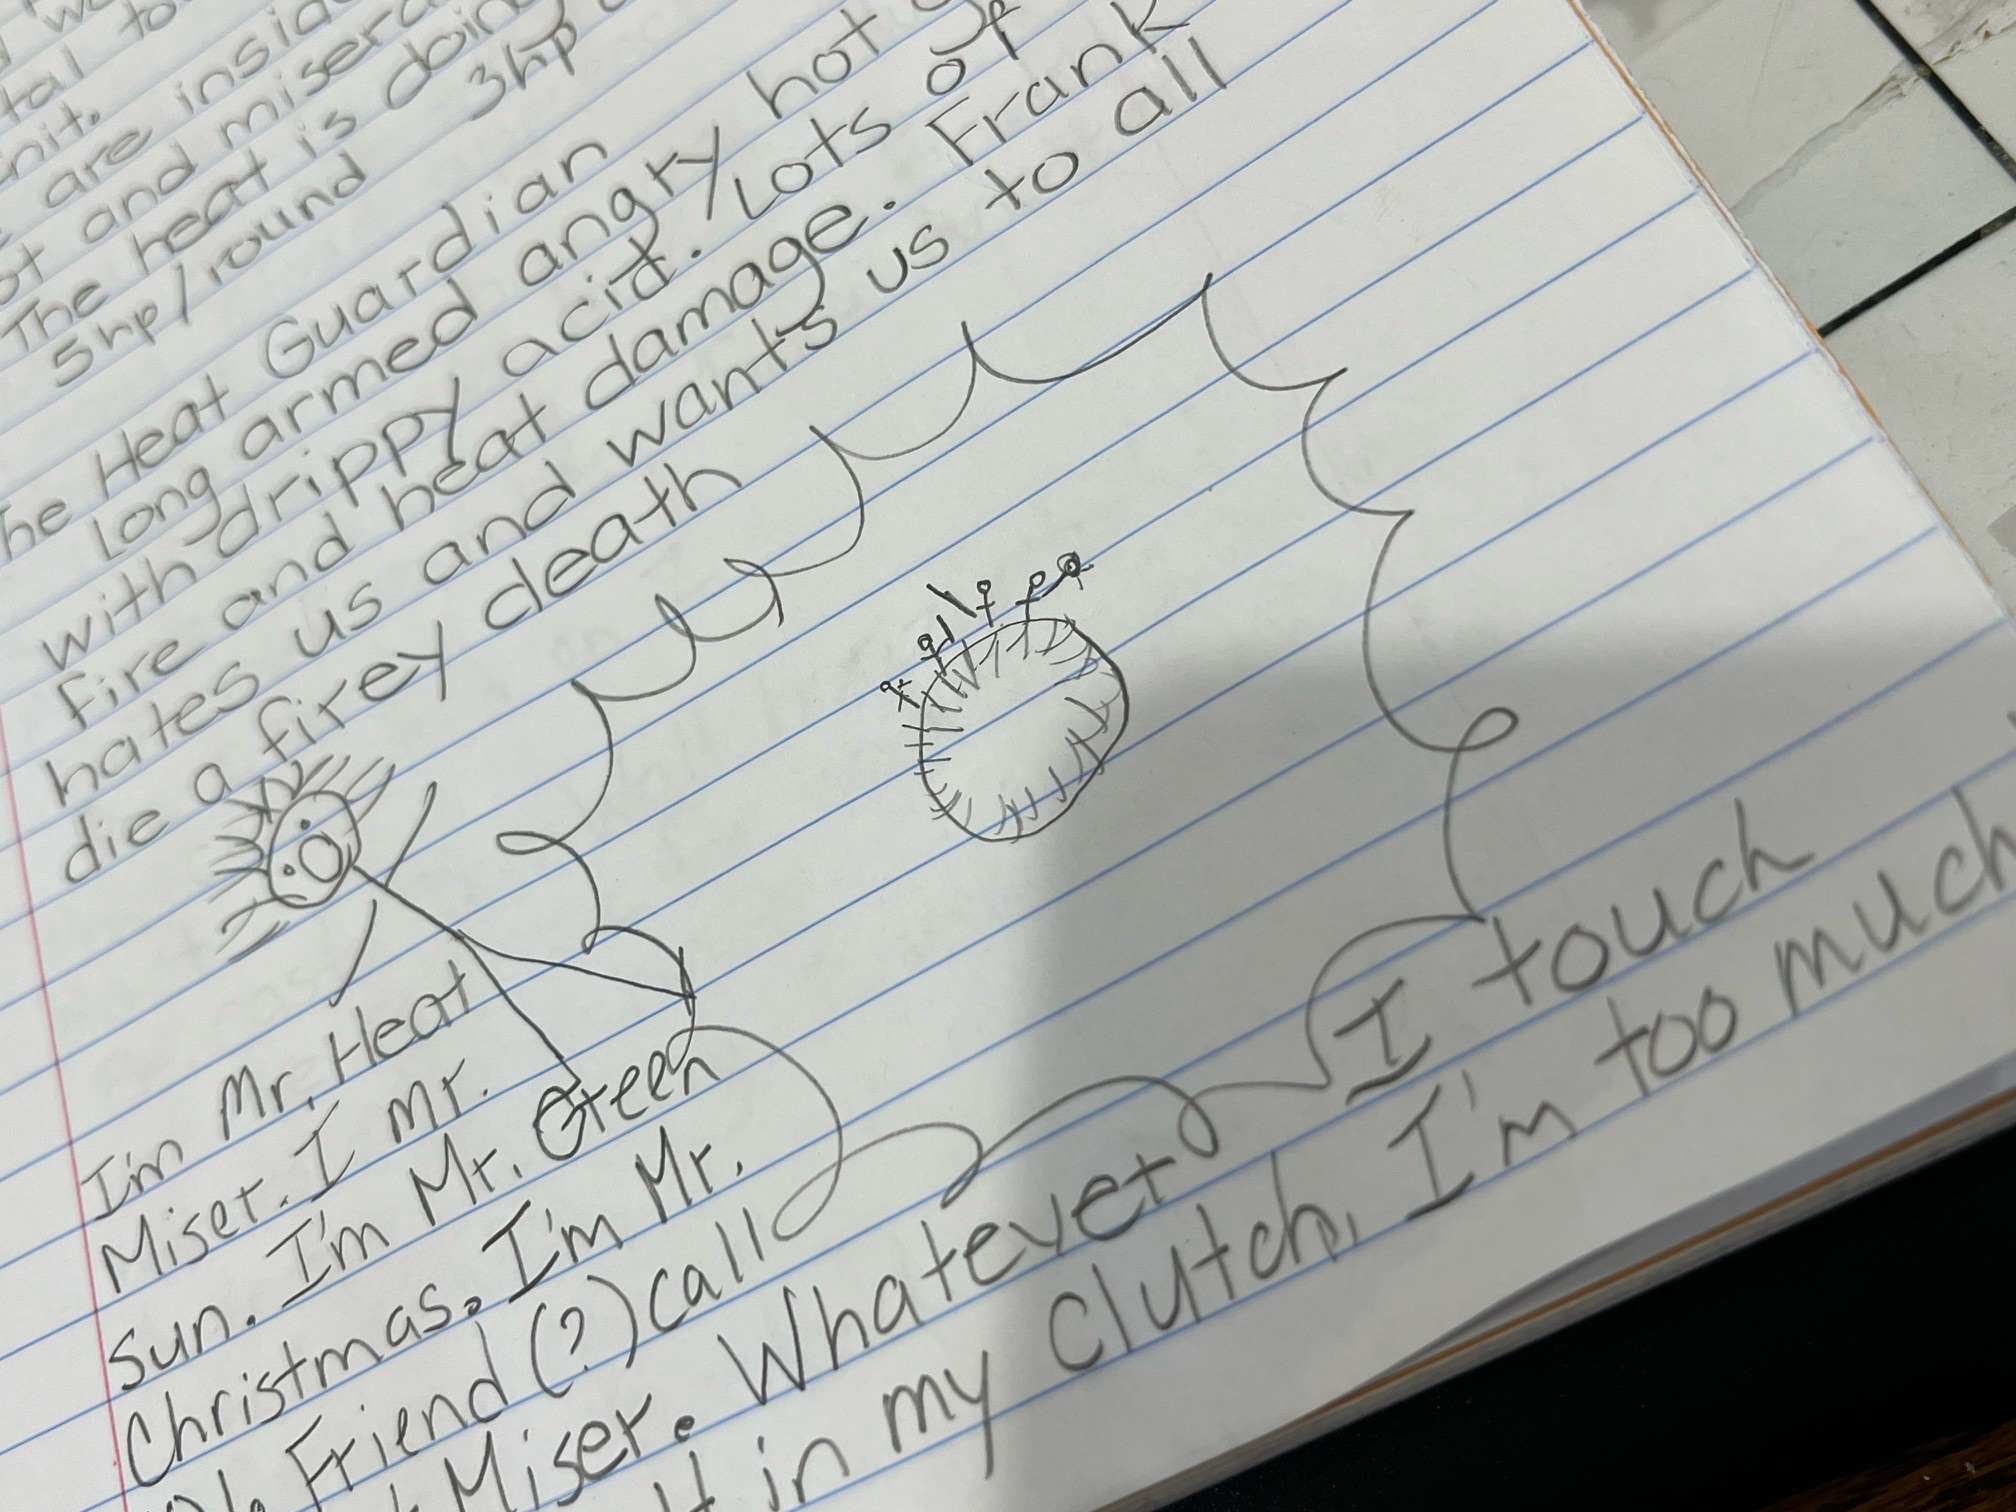 are inside
and misera
The heat is doing
5hp/round 3hp
The Heat Guardian hot
Long armed angry
with drippy acid. Lots of
fire and heat damage. Frank
hates us and wants us to all
die a firey death
I'm Mr. Heat
Miser. I mr.
Sun. I'm Mr. Green
Christmas. I'm Mr.
Friend (?) call
Miser. Whatever I touch
in my clutch, I'm too much